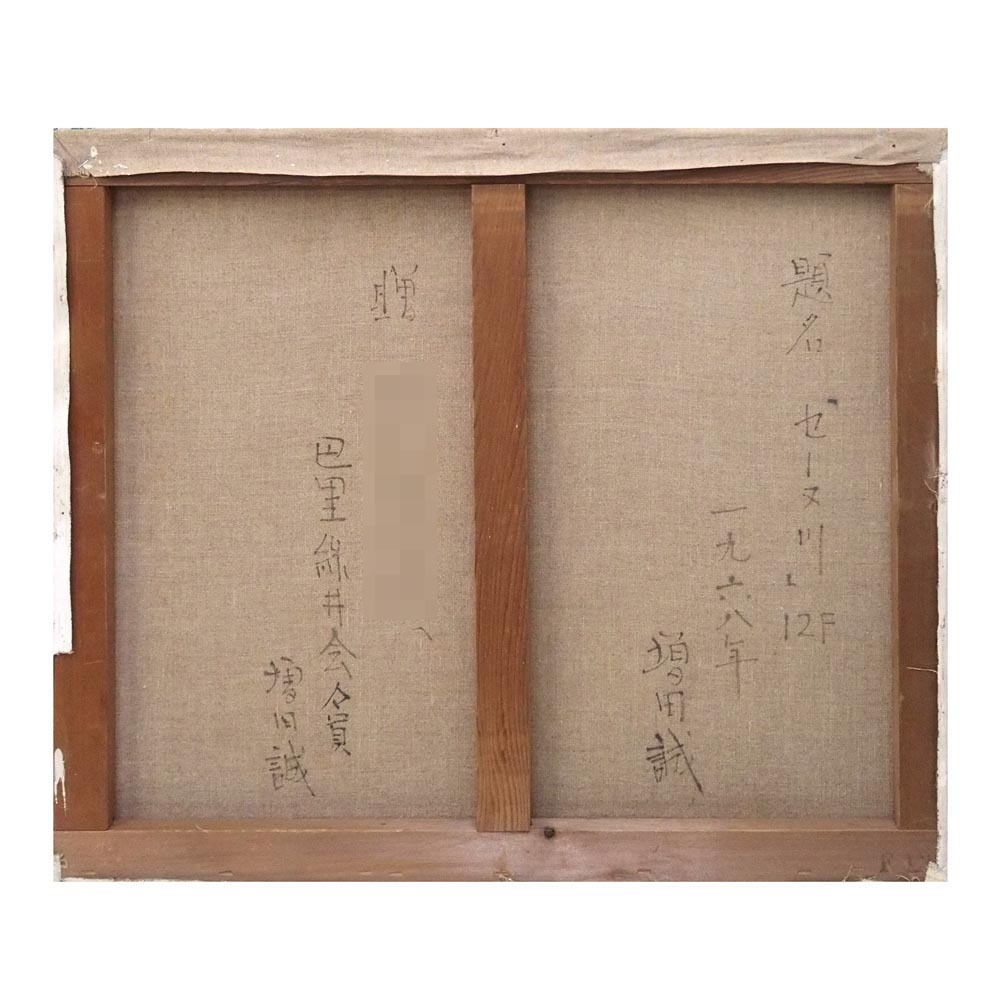 題名 「セーヌ川」 12F
一九六八年
増田誠
贈
巴里縁井会々員
増田誠